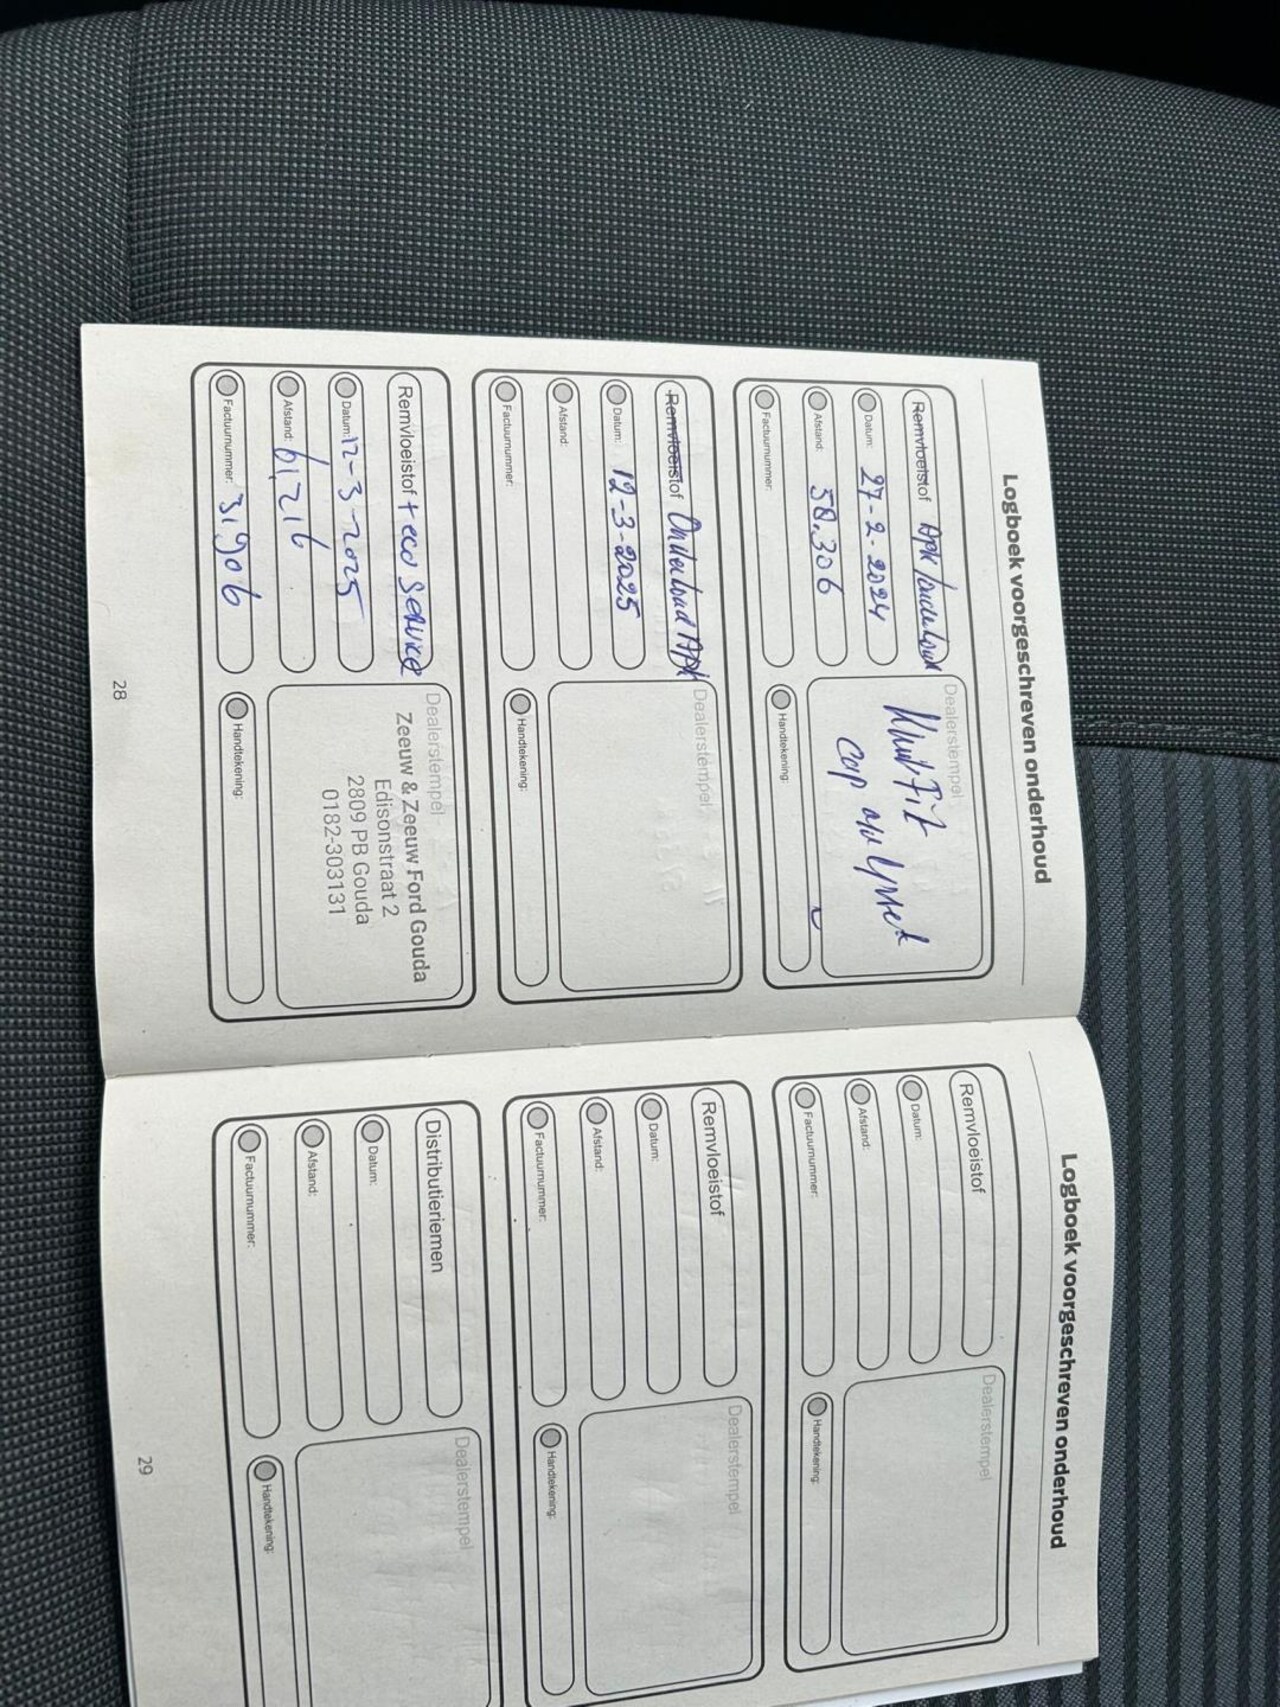 Logboek voorgeschreven onderhoud
Remvloeistof APK/onderhoud
Datum: 27-2-2024
Afstand: 58.306
Factuurnummer:
Dealerstempel
KwikFit
Cap a/d IJssel
Handtekening:
Remvloeistof Onderhoud APK
Datum: 12-3-2025
Afstand:
Factuurnummer:
Dealerstempel
Handtekening:
Remvloeistof + eco Service
Datum: 12-3-2025
Afstand: 61.216
Factuurnummer: 31906
Dealerstempel
Zeeuw & Zeeuw Ford Gouda
Edisonstraat 2
2809 PB Gouda
0182-303131
Handtekening:
28
Logboek voorgeschreven onderhoud
Remvloeistof
Datum:
Afstand:
Factuurnummer:
Dealerstempel
Handtekening:
Remvloeistof
Datum:
Afstand:
Factuurnummer:
Dealerstempel
Handtekening:
Distributieriemen
Datum:
Afstand:
Factuurnummer:
Dealerstempel
Handtekening:
29